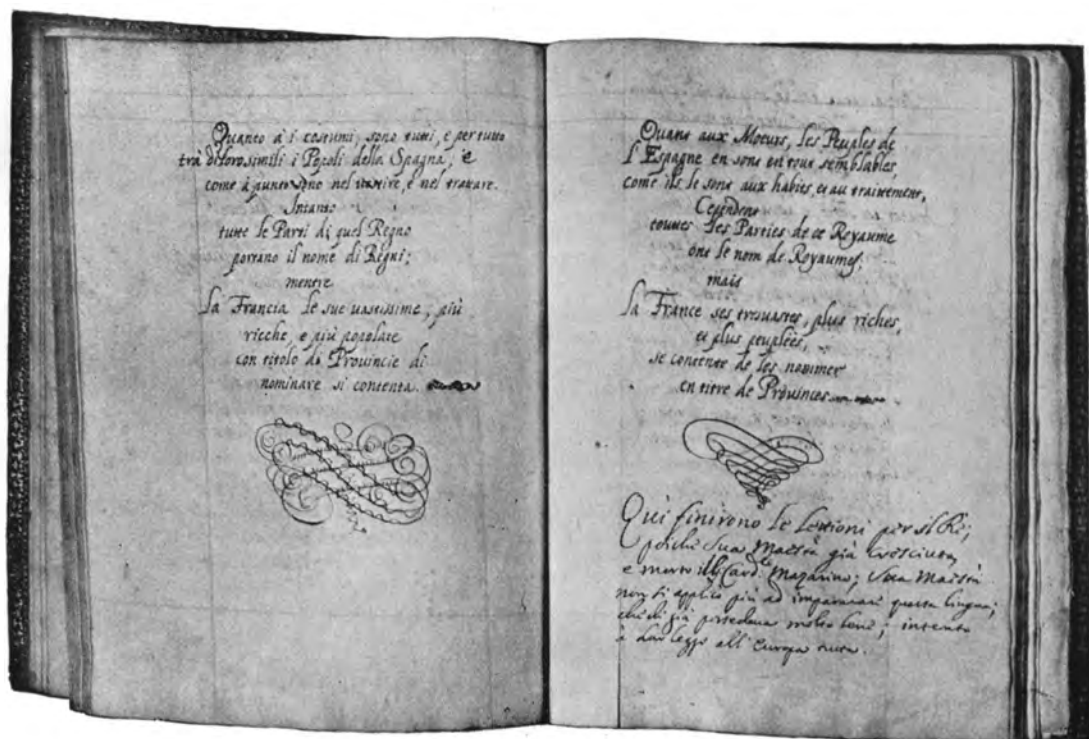 Quanto à i costumi, sono tutti, e per tutto
trà di loro simili i Popoli della Spagna, e
come à punto sono nel vestire, e nel trattare.
Intanto
tutte le Parti di quel Regno
portano il nome di Regni;
mentre
la Francia le sue vastissime, più
ricche, e più popolate
con titolo di Prouincie di
nominare si contenta.
Quant aux Moeurs, les Peuples de
l'Espagne en sont en tout semblables,
come ils le sont aux habits, et au traittement,
Cependent
toutes les Parties de ce Royaume
ont le nom de Royaumes,
mais
la France ses plus riches,
et plus peuplées,
se contente de les nommer
en titre de Prouinces
Qui finirono le lettioni per il Rè;
poiche Sua Maestà già cresciuta,
e morto il Card.le Mazarino; Sua Maestà
non si applicò più ad imparare questa lingua;
che di già possedeua molto bene; intento
à dar leggi all'Europa tutta.